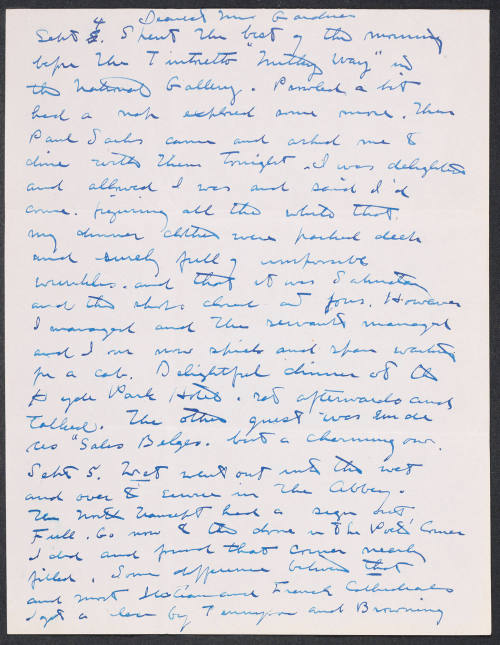 Dearest Mrs Gardner
Sept 4. Spent the best of the morning
before the Tintoretto "Milky Way" in
the National Gallery. Prowled a bit
had a nap explored some more. Then
Paul Sachs came and asked me to
dine with them tonight. I was delighted
and allowed I was and said I'd
come. figuring all the while that
my dinner clothes were packed deep
and surely full of impossible
wrinkles. and that it was Saturday
and the shops closed at four. However
I managed and the servant managed
and I am now spick and span waiting
for a cab. Delightful dinner at the
Hyde Park Hotel. sat afterwards and
talked. The other guest was
"Sales Belges. but a charming one.
Sept 5. Wet went out into the wet
and over to service in the Abbey.
The North Transept had a sign out
Full. Go now to the door in the Poets' Corner
I did and found that corner nearly
filled. Some difference between that
and most Italian and French Cathedrals
I got a place by Tennyson and Browning